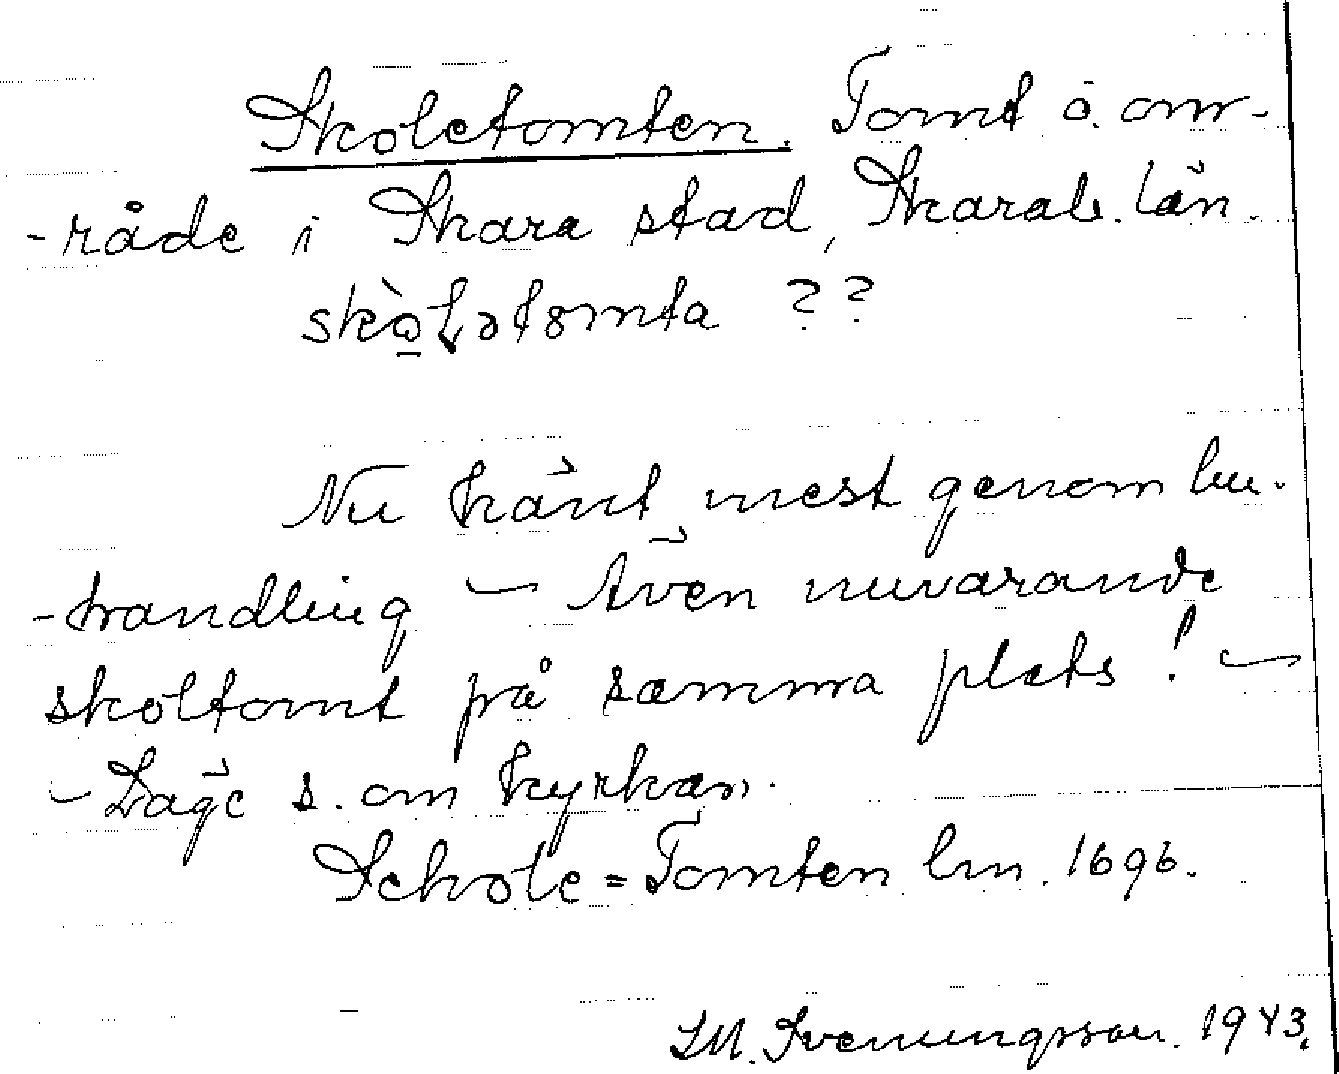 Skoletomten. Tomt å om-
-råde i Skara stad, Skarab. län.
skò̱ɫətomta ??
Nu känt mest genom lm.
-handling — Även nuvarande
skoltomt på samma plats! —
— Läge s. om kyrkan.
Schole=Tomten lm. 1696.
S.M. Svenungsson. 1943.